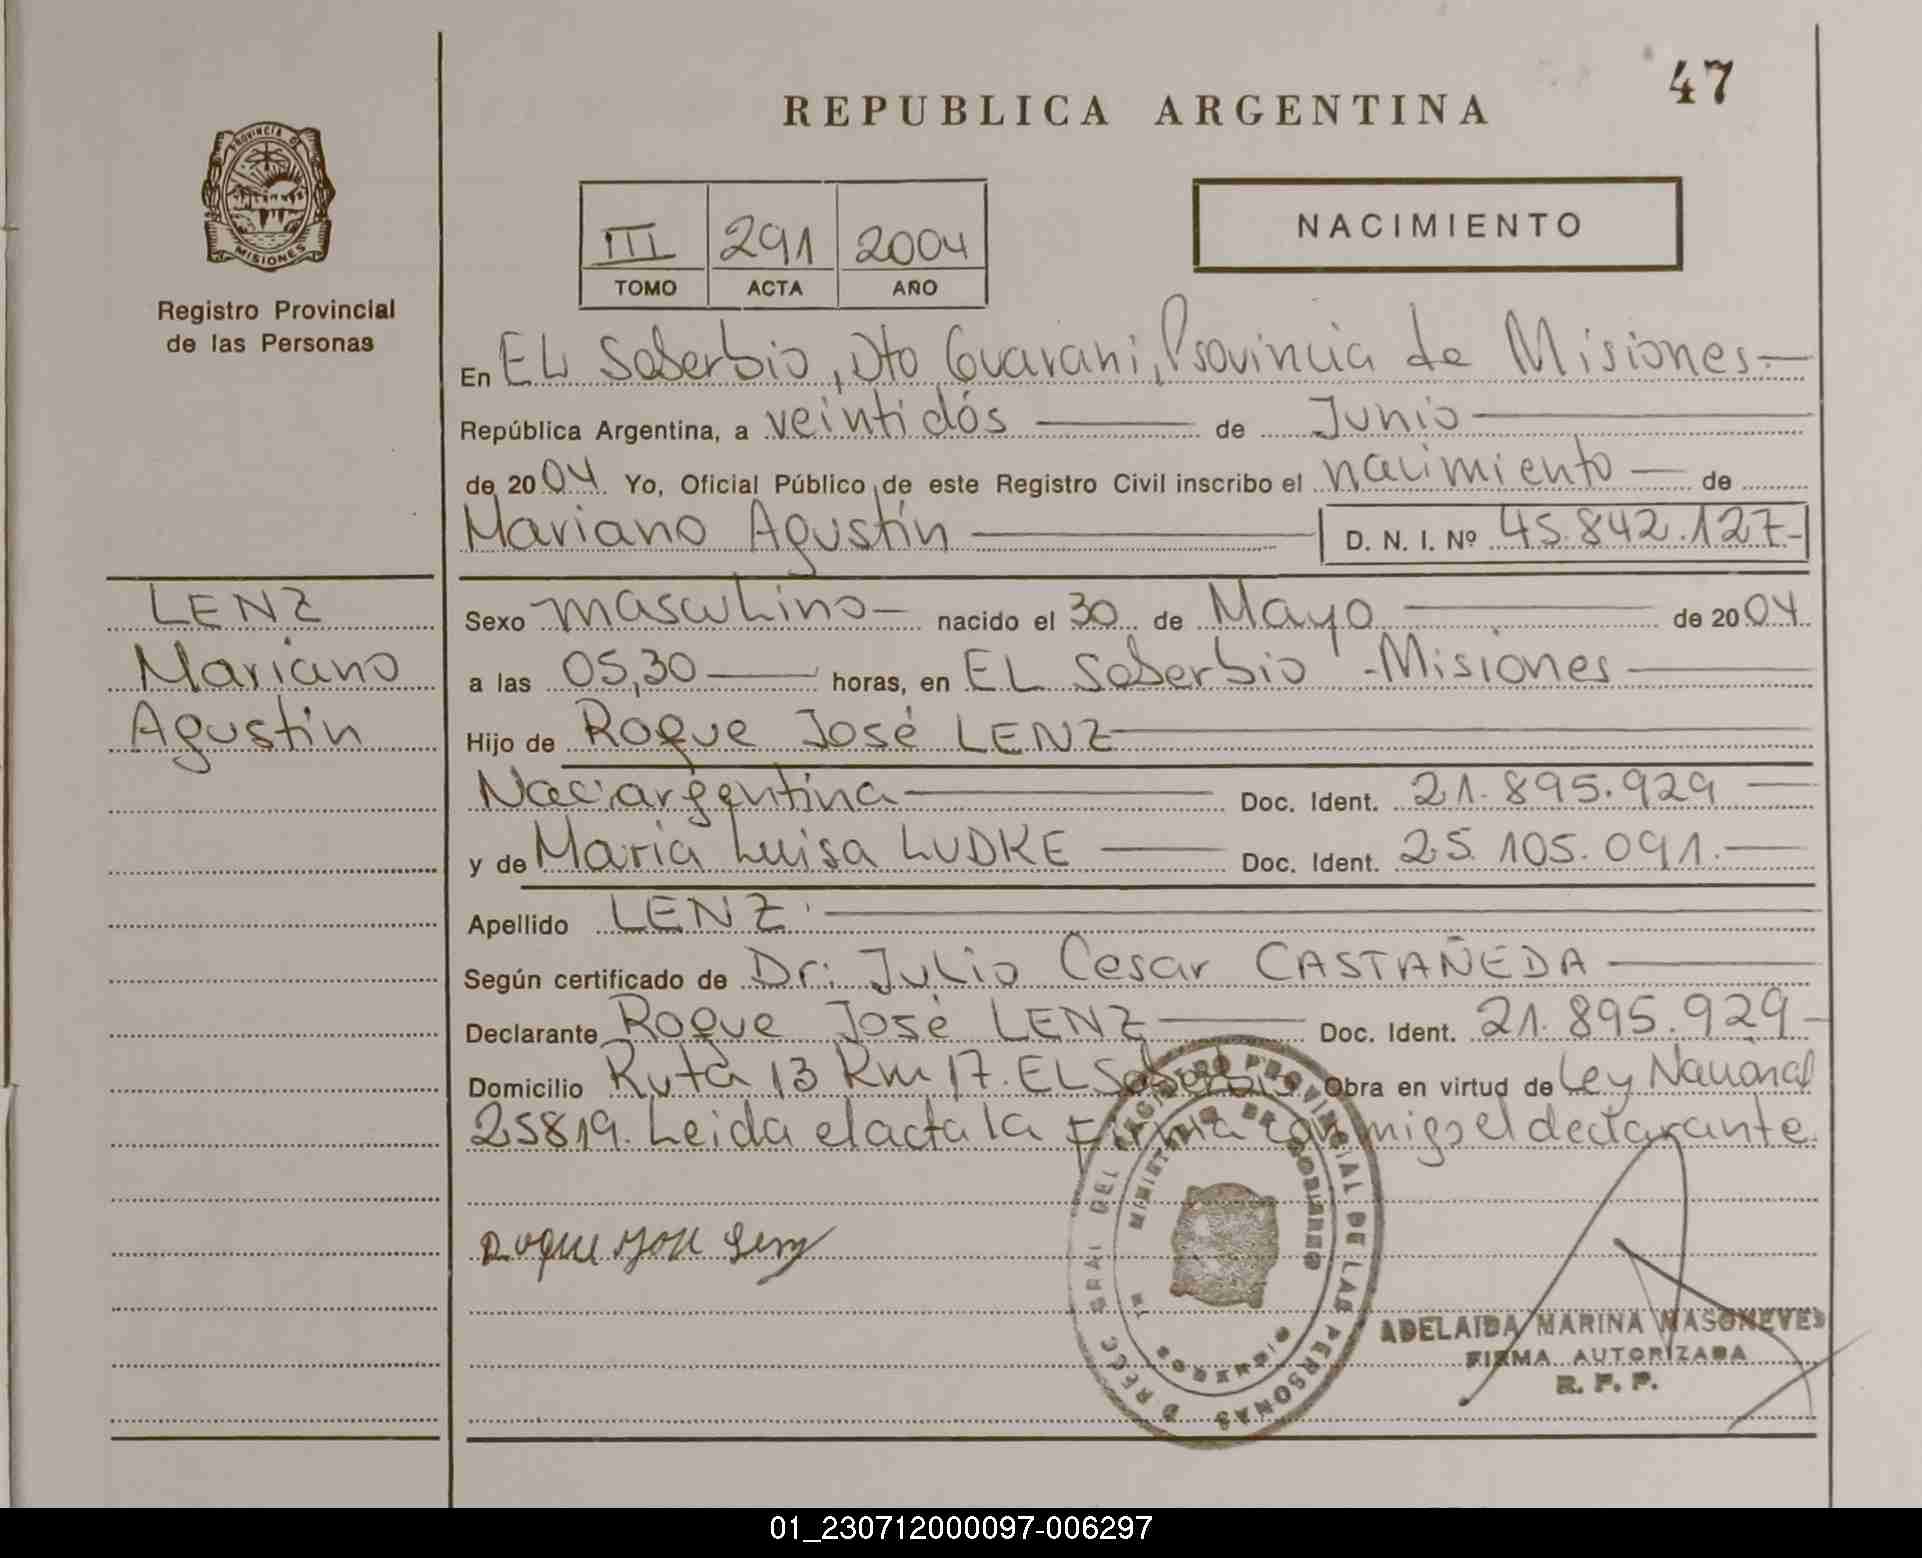 47
REPUBLICA ARGENTINA
PROVINCIA DE
MISIONES
Registro Provincial
de las Personas
III 291 2004
TOMO ACTA AÑO
NACIMIENTO
En EL Soberbio, Dto Guarani, Provincia de Misiones.
República Argentina, a veintidós de Junio
de 2004 Yo, Oficial Público de este Registro Civil inscribo el nacimiento de
Mariano Agustín D. N. I. Nº 45.842.127-
LENZ
Mariano
Agustín
Sexo masculino nacido el 30 de Mayo de 2004
a las 05,30 horas, en EL Soberbio - Misiones
Hijo de Roque José LENZ
Nac. argentina Doc. Ident. 21.895.929
y de María Luisa LUDKE Doc. Ident. 25.105.091.
Apellido LENZ
Según certificado de Dr: Julio Cesar CASTAÑEDA
Declarante Roque José LENZ Doc. Ident. 21.895.929
Domicilio Ruta 13 Km 17. EL Soberbio Obra en virtud de Ley Nacional
25819. Leida el acta la firma conmigo el declarante.
Roque José Lenz
DIRECC GRAL DEL REGISTRO PROVINCIAL DE LAS PERSONAS
MINISTERIO DE GOBIERNO
MISIONES
ADELAIDA MARINA MASONEVES
FIRMA AUTORIZADA
R. P. P.
01_230712000097-006297